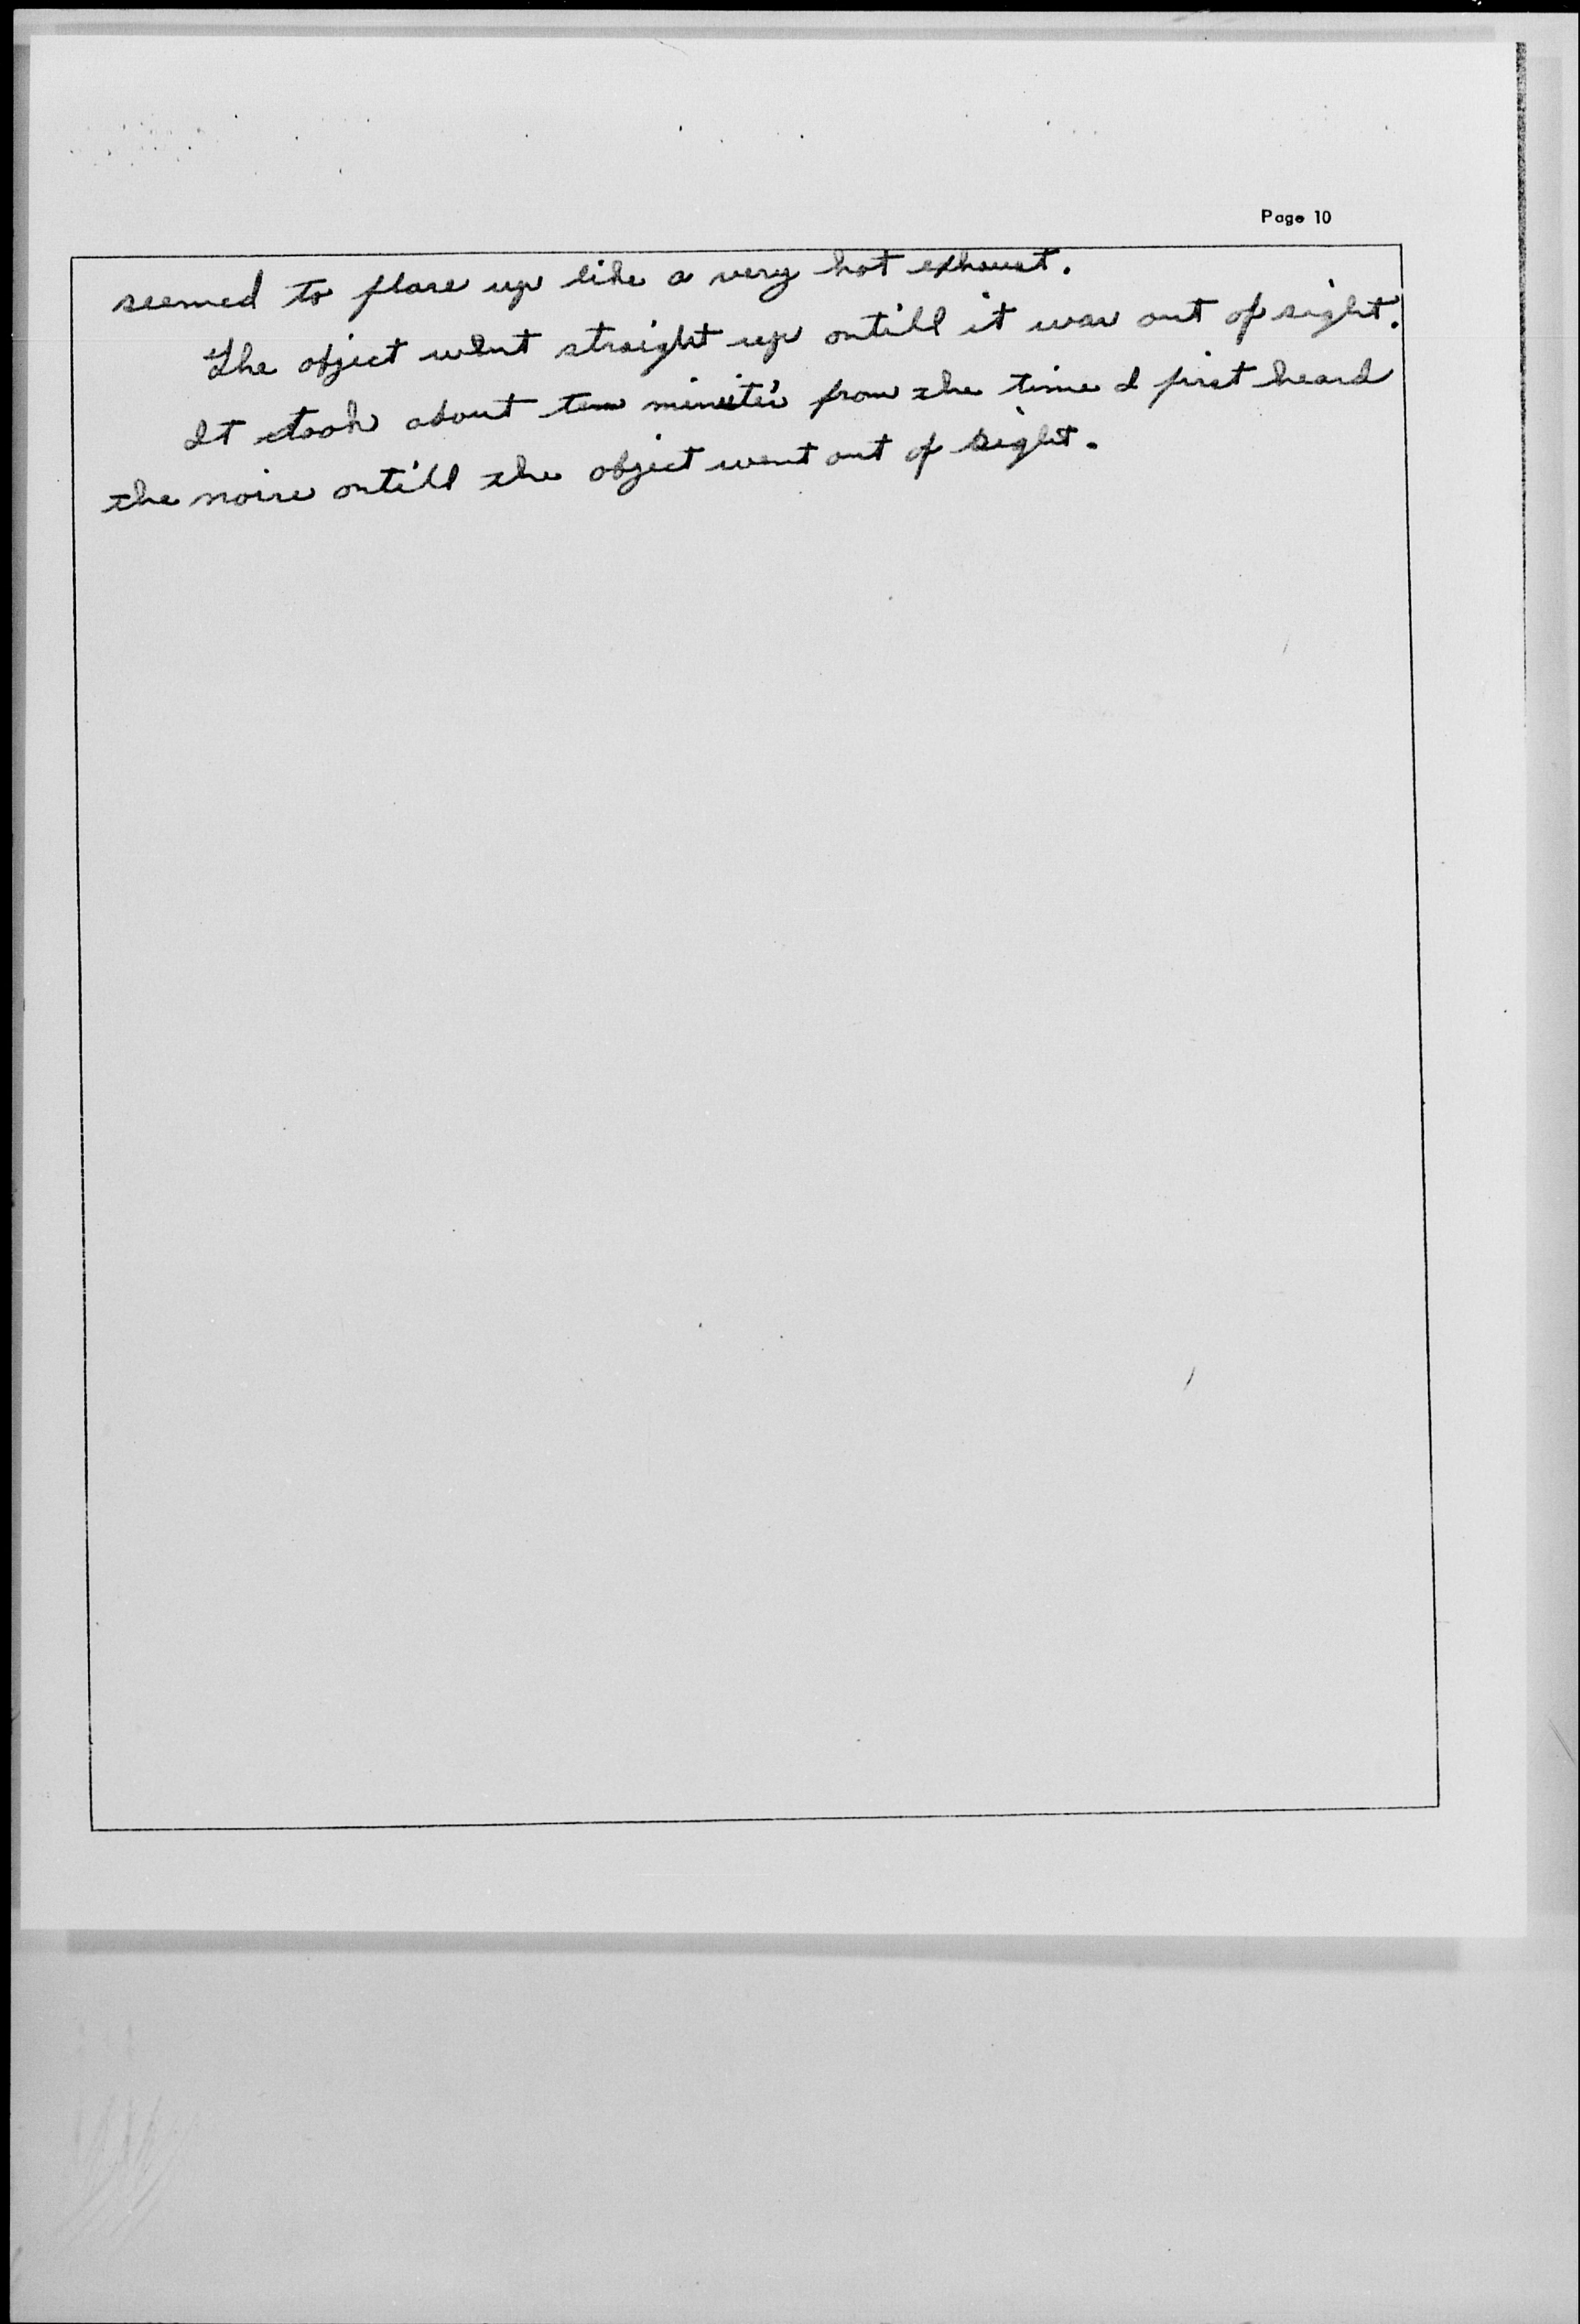 Page 10
seemed to flare up like a very hot exhaust.
The object went straight up ontill it was out of sight.
It took about ten minites from the time I first heard
the noise ontill the object went out of sight.